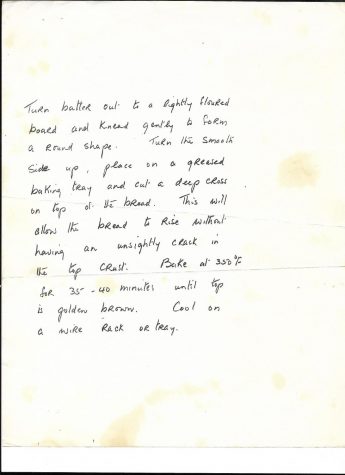 Turn batter out to a lightly floured
board and knead gently to form
a round shape. Turn the smooth
side up, place on a greased
baking tray and cut a deep cross
on top of the bread. This will
allow the bread to rise without
having an unsightly crack in
the top crust. Bake at 350°F
for 35-40 minutes until top
is golden brown. Cool on
a wire rack or tray.